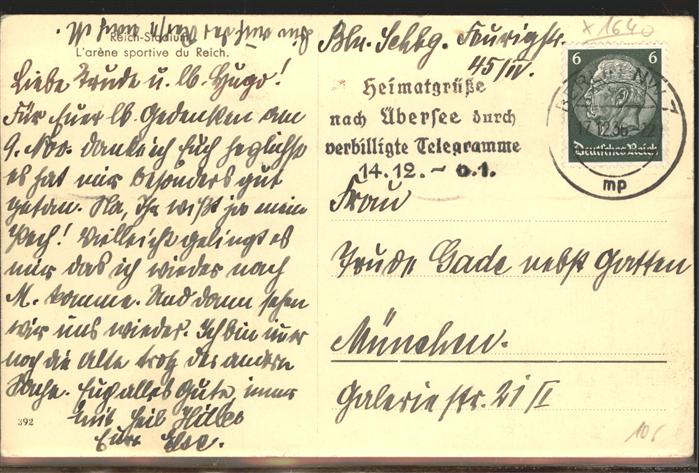 Reich-Stadium.
L'arène sportive du Reich.
Liebe Trude u. lb. Hugo!
Für Euer lb. Gedenken am
9. Nov. dank ich Euch herzlichst
es hat mir besonders gut
getan. Na, ihr wißt ja mein
Pech! Vielleicht gelingt es
mir das ich wieder nach
M. komme. Und dann sehen
wir uns wieder. Ich bin immer
noch die Alte trotz der andern
Sache. Euch alles Gute, immer
mit Heil Hitler
Eure Else.
392
Bln. Schbg.
45/IV.
x 1640
6 6
Deutsches Reich
BERLIN NW 7
17.12.36
mp
Heimatgrüße
nach Übersee durch
verbilligte Telegramme
14.12. – 6.1.
Frau
Trude Gade nebst Gatten
München.
Galeriestr. 21/I
10,